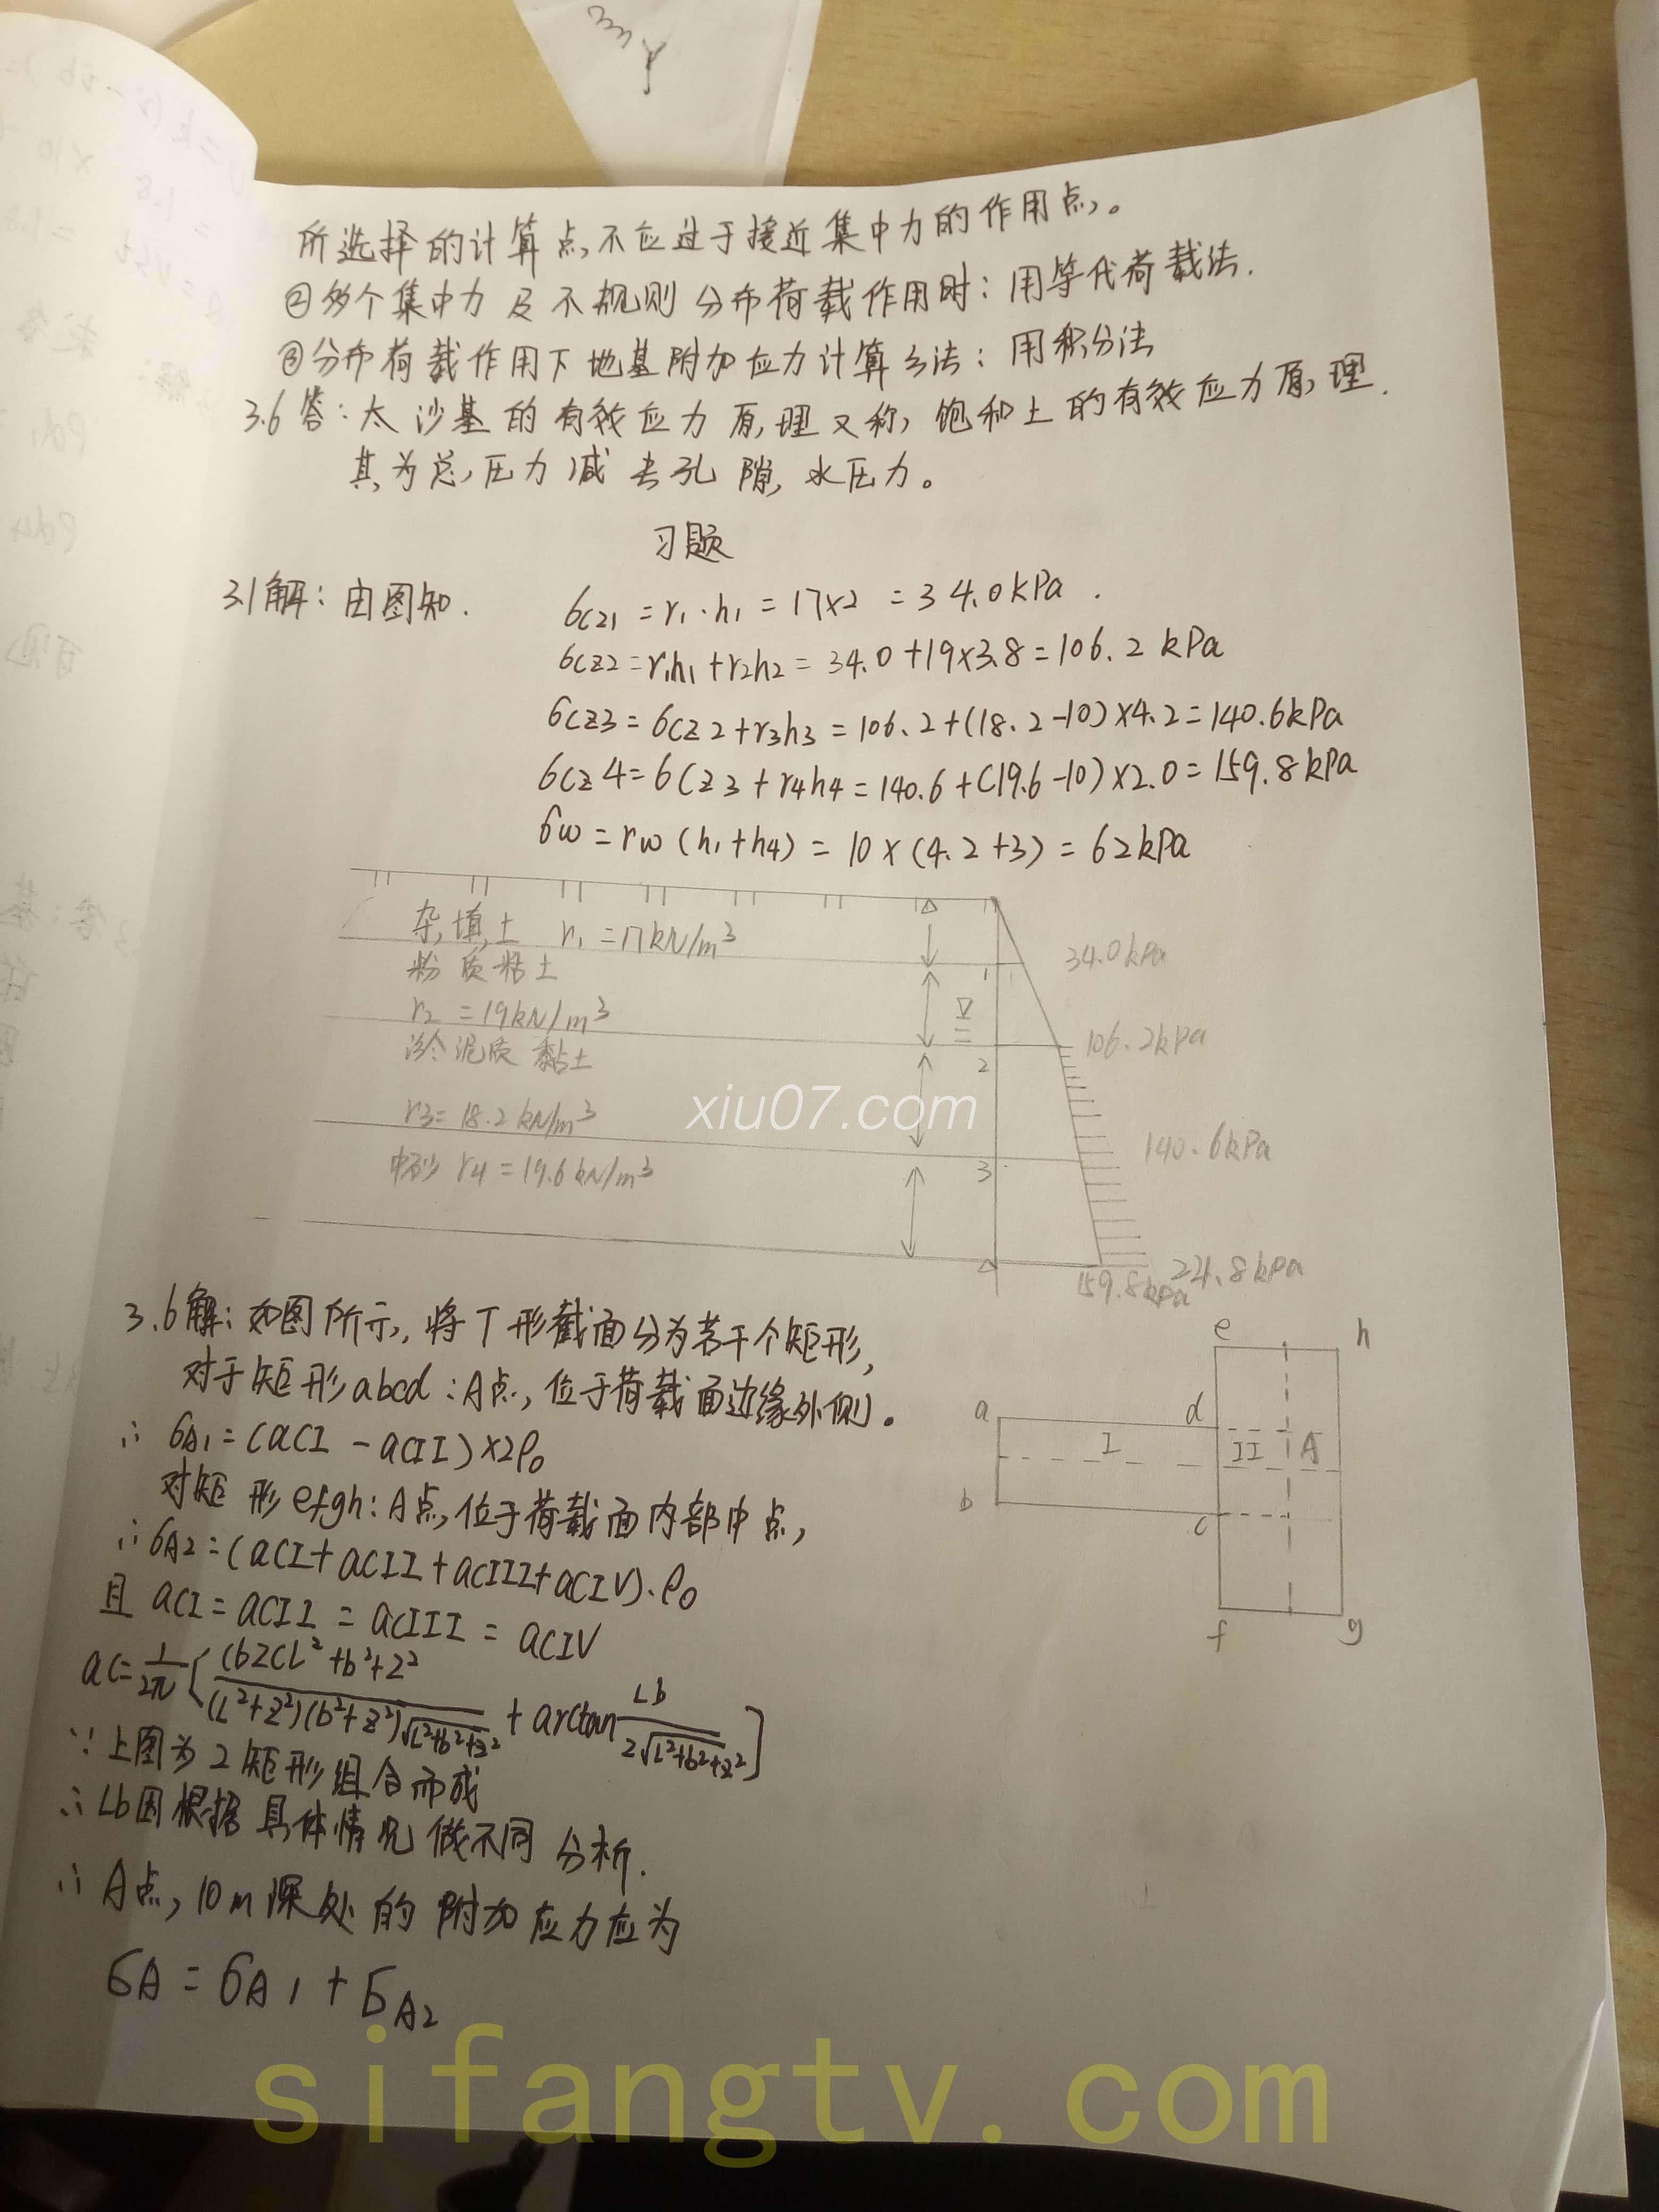 所选择的计算点,不应过于接近集中力的作用点。
②多个集中力及不规则分布荷载作用时:用等代荷载法.
③分布荷载作用下地基附加应力计算方法:用积分法
3.6答:太沙基的有效应力原理又称,饱和土的有效应力原理.
其为总压力减去孔隙水压力。
习题
3.1解:由图知.
6cz1=r1·h1=17×2=34.0kPa.
6cz2=r1h1+r2h2=34.0+19×3.8=106.2kPa
6cz3=6cz2+r3h3=106.2+(18.2-10)×4.2=140.6kPa
6cz4=6cz3+r4h4=140.6+(19.6-10)×2.0=159.8kPa
6w=rw(h1+h4)=10×(4.2+3)=62kPa
杂填土 r1=17kN/m³
粉质粘土
r2=19kN/m³
泥质黏土
r3=18.2kN/m³
中砂 r4=19.6kN/m³
1
2
3
34.0kPa
106.2kPa
140.6kPa
159.8kPa
221.8kPa
xiu07.com
3.6解:如图所示,将T形截面分为若干个矩形,
对于矩形abcd:A点,位于荷载面边缘外侧。
∴6A1=(acI-acII)×2P0
对矩形efgh:A点,位于荷载面内部中点,
∴6A2=(acI+acII+acIII+acIV)·P0
且acI=acII=acIII=acIV
ac=1/2π[(bZCL²+b²+Z²/(L²+Z²)(b²+Z²)√L²+b²+z²+arctan Lb/z√L²+b²+z²]
∵上图为2矩形组合而成
∴Lb因根据具体情况做不同分析.
∴A点,10m深处的附加应力应为
6A=6A1+6A2
e
h
a
d
I
II
A
b
c
f
g
sifangtv.com